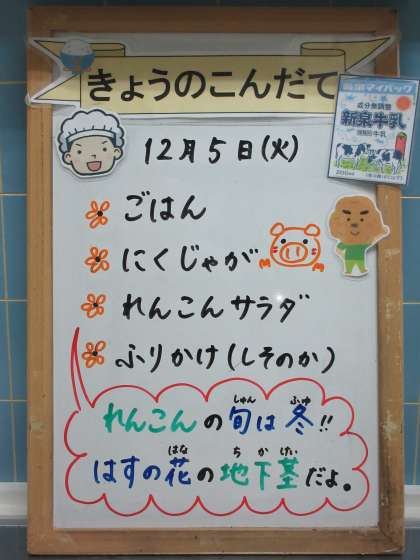 きょうのこんだて
12月5日(火)
ごはん
にくじゃが
れんこんサラダ
ふりかけ(しそのか)
れんこんの旬は冬!!
しゅん ふゆ
はすの花の地下茎だよ。
はな ち か けい
マイパック
成分無調整
新泉牛乳
200ml